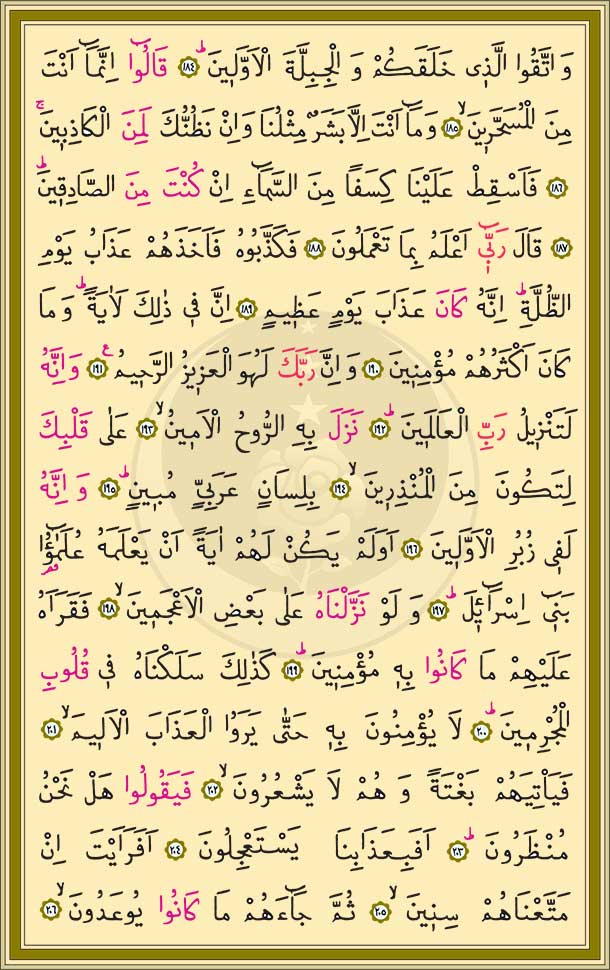 وَاتَّقُوا الَّذ۪ي خَلَقَكُمْ وَالْجِبِلَّةَ الْاَوَّل۪ينَۜ ﴿١٨٤﴾ قَالُٓوا اِنَّمَٓا اَنْتَ
مِنَ الْمُسَحَّر۪ينَۙ ﴿١٨٥﴾ وَمَٓا اَنْتَ اِلَّا بَشَرٌ مِثْلُنَا وَاِنْ نَظُنُّكَ لَمِنَ الْكَاذِب۪ينَۚ
﴿١٨٦﴾ فَاَسْقِطْ عَلَيْنَا كِسَفًا مِنَ السَّمَٓاءِ اِنْ كُنْتَ مِنَ الصَّادِق۪ينَۜ
﴿١٨٧﴾ قَالَ رَبّ۪ٓي اَعْلَمُ بِمَا تَعْمَلُونَ ﴿١٨٨﴾ فَكَذَّبُوهُ فَاَخَذَهُمْ عَذَابُ يَوْمِ
الظُّلَّةِۜ اِنَّهُ كَانَ عَذَابَ يَوْمٍ عَظ۪يمٍ ﴿١٨٩﴾ اِنَّ ف۪ي ذٰلِكَ لَاٰيَةًۜ وَمَا
كَانَ اَكْثَرُهُمْ مُؤْمِن۪ينَ ﴿١٩٠﴾ وَاِنَّ رَبَّكَ لَهُوَ الْعَز۪يزُ الرَّح۪يمُ۟ ﴿١٩١﴾ وَاِنَّهُ
لَتَنْز۪يلُ رَبِّ الْعَالَم۪ينَۜ ﴿١٩٢﴾ نَزَلَ بِهِ الرُّوحُ الْاَم۪ينُۙ ﴿١٩٣﴾ عَلٰى قَلْبِكَ
لِتَكُونَ مِنَ الْمُنْذِر۪ينَۙ ﴿١٩٤﴾ بِلِسَانٍ عَرَبِيٍّ مُب۪ينٍۜ ﴿١٩٥﴾ وَاِنَّهُ
لَف۪ي زُبُرِ الْاَوَّل۪ينَ ﴿١٩٦﴾ اَوَلَمْ يَكُنْ لَهُمْ اٰيَةً اَنْ يَعْلَمَهُ عُلَمٰٓؤُ۬ا
بَن۪ٓي اِسْرَٓائ۪لَۜ ﴿١٩٧﴾ وَلَوْ نَزَّلْنَاهُ عَلٰى بَعْضِ الْاَعْجَم۪ينَۙ ﴿١٩٨﴾ فَقَرَاَهُ
عَلَيْهِمْ مَا كَانُوا بِه۪ مُؤْمِن۪ينَۜ ﴿١٩٩﴾ كَذٰلِكَ سَلَكْنَاهُ ف۪ي قُلُوبِ
الْمُجْرِم۪ينَۜ ﴿٢٠٠﴾ لَا يُؤْمِنُونَ بِه۪ حَتّٰى يَرَوُا الْعَذَابَ الْاَل۪يمَۙ ﴿٢٠١﴾
فَيَأْتِيَهُمْ بَغْتَةً وَهُمْ لَا يَشْعُرُونَۙ ﴿٢٠٢﴾ فَيَقُولُوا هَلْ نَحْنُ
مُنْظَرُونَۜ ﴿٢٠٣﴾ اَفَبِعَذَابِنَا يَسْتَعْجِلُونَ ﴿٢٠٤﴾ اَفَرَاَيْتَ اِنْ
مَتَّعْنَاهُمْ سِن۪ينَۙ ﴿٢٠٥﴾ ثُمَّ جَٓاءَهُمْ مَا كَانُوا يُوعَدُونَۙ ﴿٢٠٦﴾